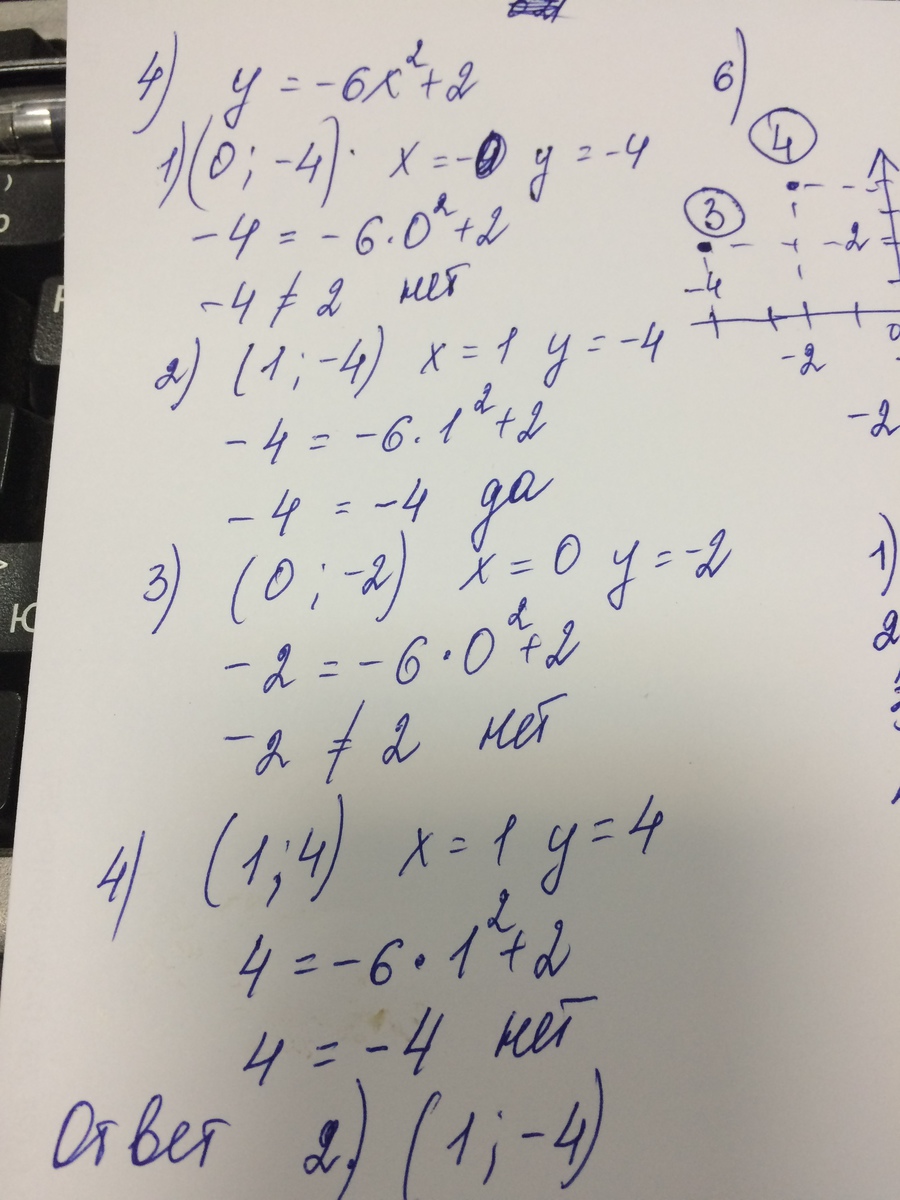 4) y = -6x² + 2
1) (0 ; -4) x = -0 y = -4
-4 = -6·0² + 2
-4 ≠ 2 нет
2) (1 ; -4) x = 1 y = -4
-4 = -6·1² + 2
-4 = -4 да
3) (0 ; -2) x = 0 y = -2
-2 = -6·0² + 2
-2 ≠ 2 нет
4) (1 ; 4) x = 1 y = 4
4 = -6·1² + 2
4 = -4 нет
Ответ 2) (1 ; -4)
6)
4
3
2
-4
-2
0
-2
1)
2
Ю